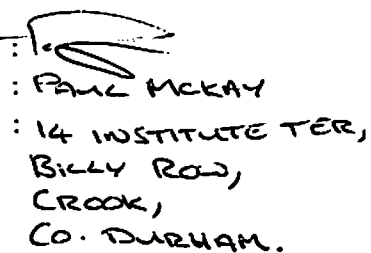 :
: PAUL MCKAY
: 14 INSTITUTE TER,
BILLY ROW,
CROOK,
CO. DURHAM.